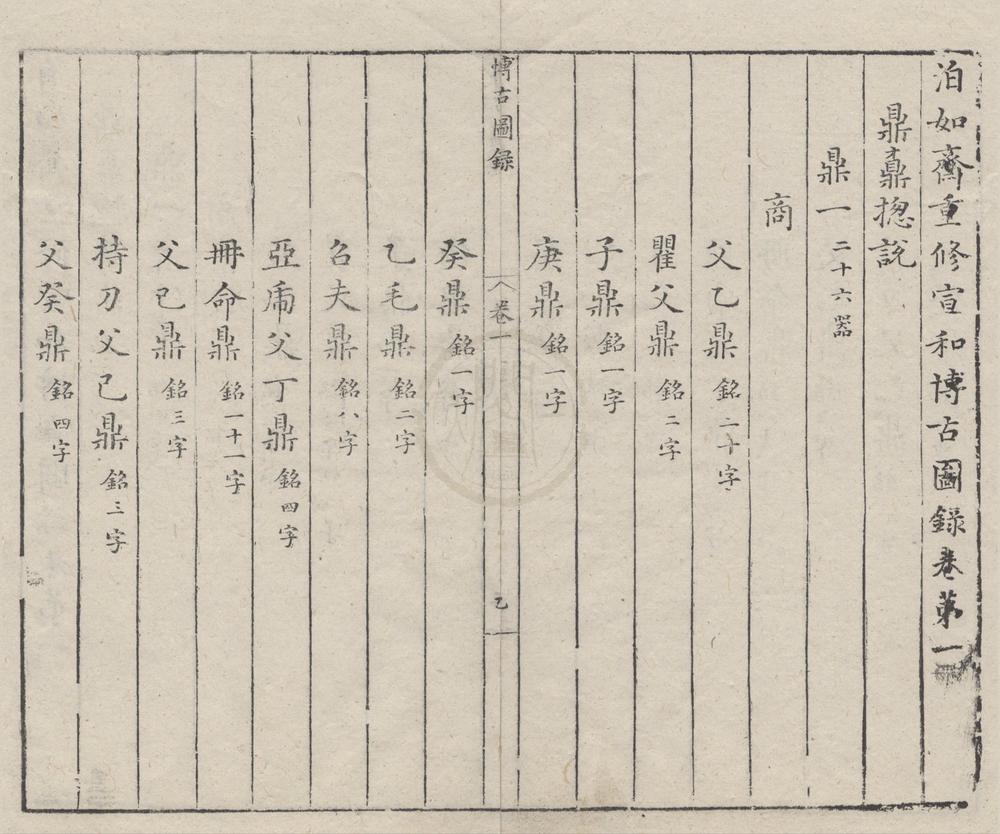 泊如齋重修宣和博古圖錄卷第一
鼎鼒揔說
鼎一 二十六器
商
父乙鼎 銘二十字
瞿父鼎 銘二字
子鼎 銘一字
庚鼎 銘一字
博古圖錄 卷一 乙
癸鼎 銘一字
乙毛鼎 銘二字
召夫鼎 銘八字
亞虎父丁鼎 銘四字
冊命鼎 銘一十一字
父己鼎 銘三字
持刀父己鼎 銘三字
父癸鼎 銘四字